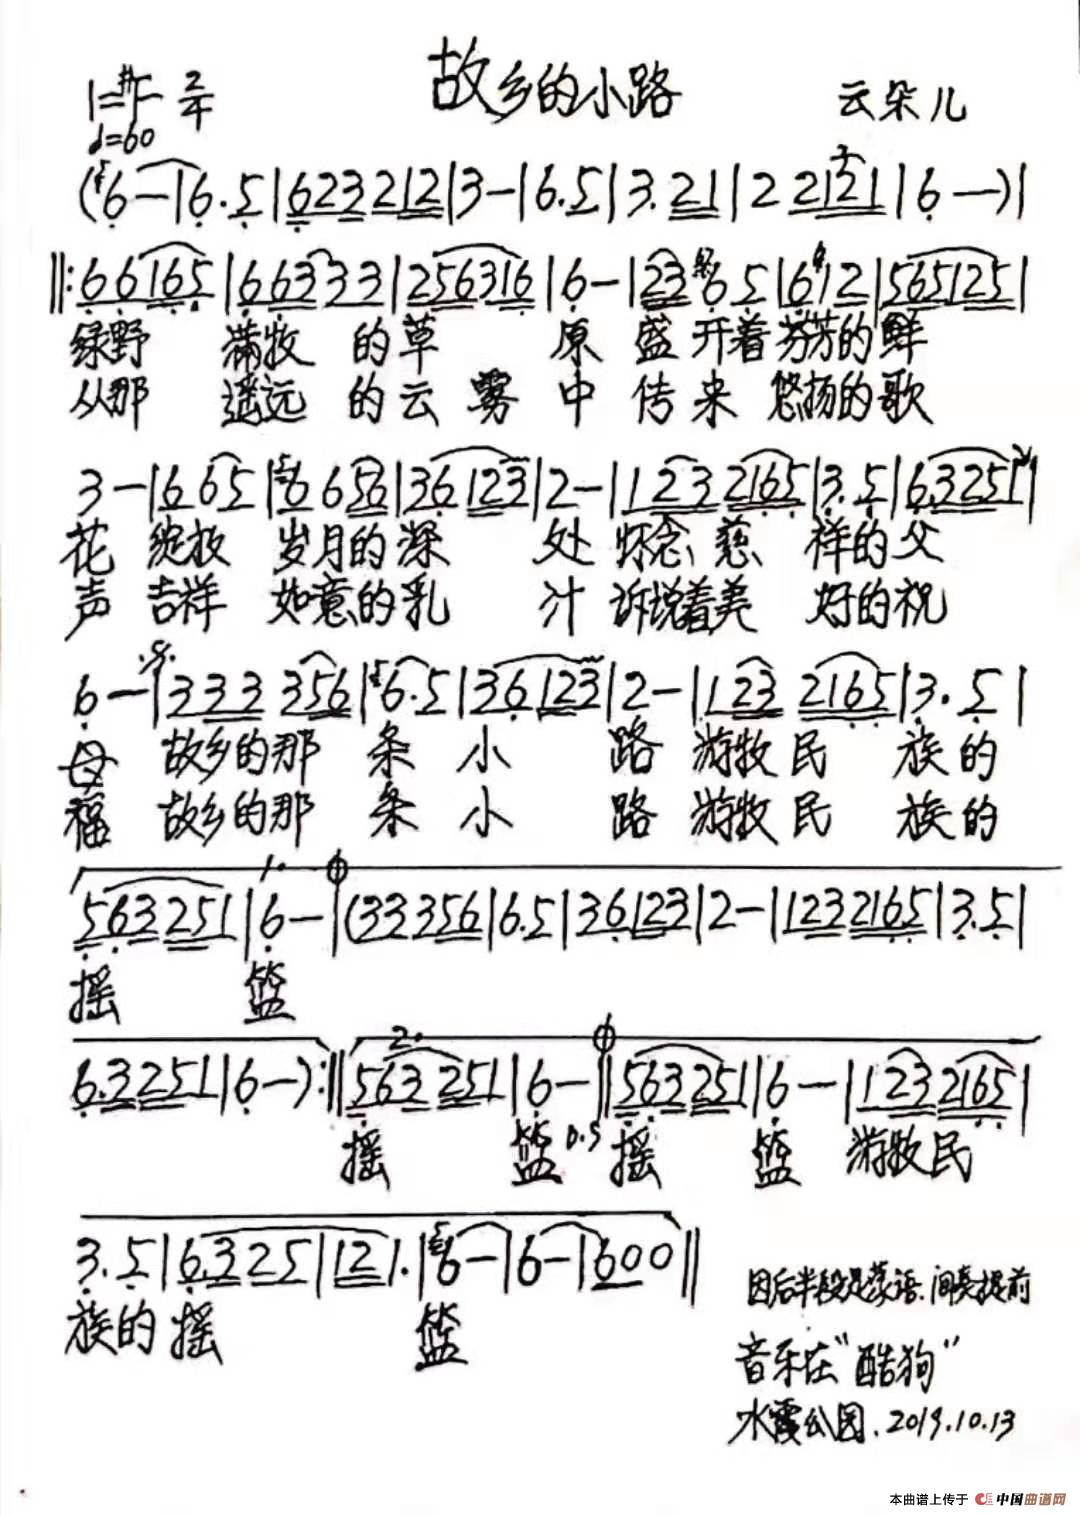 故乡的小路
1=#F 2/4
♩=60
云朵儿
(6—|6.5|623212|3—|6.5|3.21|22121|6—)|
‖:66165|663333|256316|6—|2365|612|565125|
绿野 满牧 的草 原 盛开着芬芳的鲜
从那 遥远 的云雾中 传来 悠扬的歌
3—|665|6656|36123|2—|1232165|3.5|6.3251|
花 绽放 岁月的深 处 怀念 慈祥的父
声 吉祥 如意的乳 汁 诉说着美 好的祝
6—|333356|6.5|36123|2—|1232165|3.5|
母 故乡的那 条小 路 游牧民 族的
福 故乡的那 条小 路 游牧民 族的
1.
563251|6—|(33356|6.5|36123|2—|1232165|3.5|
摇 篮
2.
6.3251|6—):‖563251|6—‖563251|6—|1232165|
摇 篮 D.S 摇 篮 游牧民
3.5|6.325|121.|6—|6—|600‖
族的摇 篮
因后半段是蒙语.间奏提前
音乐在"酷狗"
水霞公园.2019.10.13
本曲谱上传于 中国曲谱网